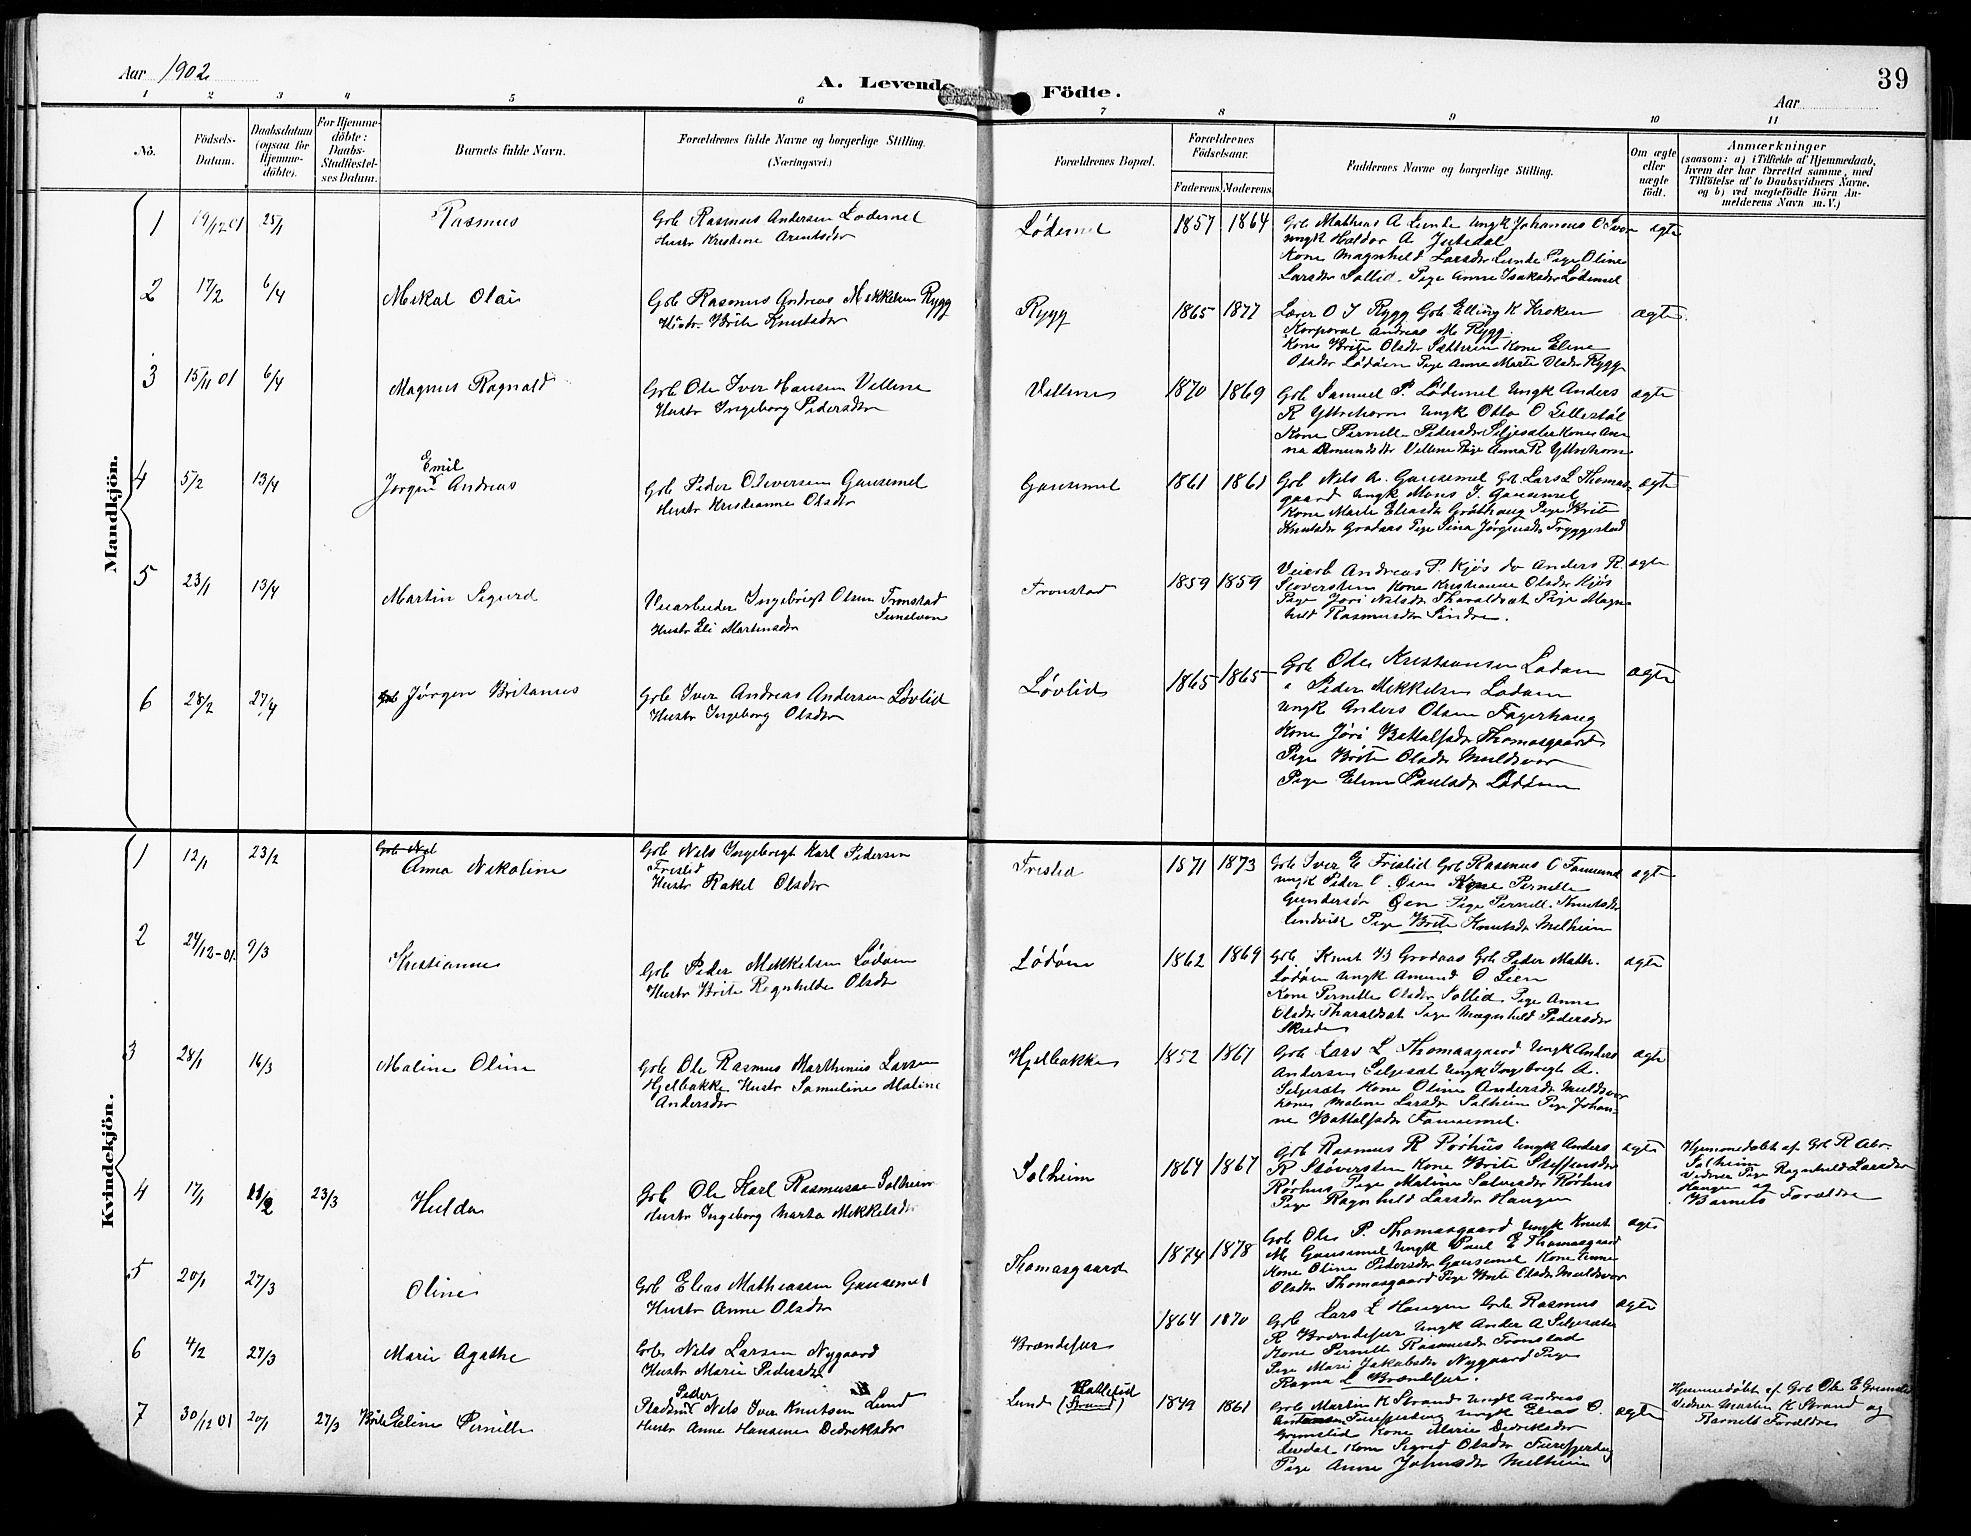 Aar 1902
A. Levende Födte.
39
Aar
1 2 3 4 5 6 7 8 9 10 11
No.
Födsels-Datum.
Daabsdatum (ogsaa for Hjemme-döbte).
For Hjemme-döbte: Daabs-Stadfæstel-ses Datum.
Barnets fulde Navn.
Forældrenes fulde Navne og borgerlige Stilling.
(Næringsvei.)
Forældrenes Bopæl.
Forældrenes Födselsaar.
Faderens. Moderens.
Faddernes Navne og borgerlige Stilling.
Om ægte eller uægte født.
Anmærkninger
(saasom: a) i Tilfælde af Hjemmedaab,
hvem der har forrettet samme, med
Tilföielse af to Daabsvidners Navne.
og b) ved uegtefödte Börn An-
melderens Navn m. V.)
Mandkjön.
1 19/12 01 25/1 Rasmus
Gbr Rasmus Andersen Lødemel
Hustr Kristine Arentsdr
Lødemel 1857 1864
Gbr Mathias A Lunde Ungk Johannes O
Ungk Haldor A
Kone Magnhild Larsdr Lunde Pige Oline
Larsdr Sollid Pige Anne Isaksdr Lødemel
ægte
2 17/2 6/4 Mikal Olai
Gbr Rasmus Andreas Mikkelsen Rygg
Hustr Brite Knutsdr
Rygg 1865 1877
Lærer O J Rygg Gbr Elling K Kroken
Korporal Andreas M Rygg
Kone Brite Olsdr Sætteren Kone Eline
Olsdr Lødøen Pige Anne Marte Olsdr Rygg
ægte
3 15/11 01 6/4 Magnus Ragnald
Gbr Ole Iver Hansen Vellene
Hustr Ingeborg Pedersdr
Vellene 1870 1869
Gbr Samuel P. Lødemel Ungk Anders
R Ytrehorn Ungk Otto O
Kone Pernille Pedersdr Seljesæter Kone An-
na Amundsdr Vellene Pige Anna R Ytrehorn
ægte
4 5/2 13/4 Jørgen Emil Andreas
Gbr Peder Oliversen Gausemel
Hustr Kristianne Olsdr
Gausemel 1861 1861
Gbr Nils A. Gausemel Gbr Lars L Thomas-
gaard Ungk Mons J. Gausemel
Kone Marte Eliasdr Grøthaug Pige Brite
Knutsdr Grodaas Pige Sina Jørgensdr Tryggestad
ægte
5 23/1 13/4 Martin Sigurd
Veiarbeider Ingebrigt Olsen Tronstad
Hustr Eli Martinsdr
Tronstad 1859 1859
Veiarb Andreas P. Kjøs do Anders R.
Støversten Kone Kristianne Olsdr Kjøs
Pige Jøri Nilsdr Tharaldsæt Pige Magn-
hild Rasmusdr Sindre.
ægte
6 28/2 27/4 Jørgen Britanus
Gbr Iver Andreas Andersen Løvlid
Hustr Ingeborg Olsdr
Løvlid 1865 1865
Gbr Ole Kristiansen Lødøen
" Peder Mikkelsen Lødøen
Ungk Anders Olsen Fagerhaug
Kone Jøri Battolfsdr Thomasgaard
Pige Brite Olsdr Muldsvor
Pige Eline Paulsdr Lødøen
ægte
Kvindekjön.
1 12/1 23/2 Anna Nikoline
Gbr Nils Ingebrigt Karl Pedersen
Frislid
Hustr Rakel Olsdr
Frislid 1871 1873
Gbr Iver E Frislid Gbr Rasmus O
Ungk Peder O. Øen Kone Pernille
Gundersdr Øen Pige Pernille Knutsdr
Lindvik Pige Brite Knutsdr Melheim
ægte
2 24/12-01 9/3 Kristianne
Gbr Peder Mikkelsen Lødøen
Hustr Brite Ragnhilde Olsdr
Lødøen 1862 1869
Gbr Knut B Grodaas Gbr Peder Math.
Lødøen Ungk Amund O Lien
Kone Pernille Olsdr Sollid Pige Anne
Olsdr Tharaldsæt Pige Magnhild Pedersdr
Skrede
ægte
3 28/1 16/3 Maline Oline
Gbr Ole Rasmus Marthinus Larsen
Hjelbakke Hustr Samuline Maline
Andersdr
Hjelbakke 1852 1867
Gbr Lars L Thomasgaard Ungk Anders
Andersen Seljesæt Ungk Ingebrigt A.
Seljesæt Kone Oline Andersdr Muldsvor
Kone Maline Larsdr Solheim Pige Johan-
ne Battolfsdr
ægte
4 17/1 11/2 23/3 Hulda
Gbr Ole Karl Rasmussen Solheim
Hustr Ingeborg Marta Mikkelsdr
Solheim 1864 1867
Gbr Rasmus R Rørhus Ungk Anders
R Støversten Kone Brite Steffensdr
Rørhus Pige Maline Salvesdr Rørhus
Pige Ragnhild Larsdr Haugen
ægte
Hjemmedøbt af Gbr R Abr.
Solheim
Vidner Pige Ragnhild Larsdr
Haugen og
Barnets Forældre
5 20/1 27/3 Oline
Gbr Elias Mathiassen Gausemel
Hustr Anne Olsdr
Thomasgaard 1874 1878
Gbr Ole P. Thomasgaard Ungk Knut
M Gausemel Ungk Paul E Thomasgaard
Kone Oline Pedersdr Gausemel Kone Anne
Olsdr Thomasgaard Pige Brite Olsdr Muldsvor
ægte
6 4/2 27/3 Marie Agathe
Gbr Nils Larsen Nygaard
Hustr Marie Pedersdr
Brændefur 1864 1870
Gbr Lars L Haugen Gbr Rasmus
R Brændefur Ungk Ander A Seljesæter
Kone Pernille Rasmusdr Tronstad
Pige Mari Jakobsdr Nygaard Pige
Ragna L Brændefur.
ægte
7 30/12 01 20/1 27/3 Brite Eline Pernille
Pladsmd Peder Nils Iver Knutsen Lund
Hustr Anne Hansine Dedriksdr
Lund (Strand) 1849 1861
Gbr Martin K Strand Ungk Andreas
Furefjerding Ungk Elias O.
Grimslid Kone Marie Dedriksdr
Kone Sigrid Olsdr Furefjerding
Pige Anne Johnsdr Melheim
ægte
Hjemmedøbt af Gbr Ole E
Vidner Martin K Strand og
Barnets Forældre